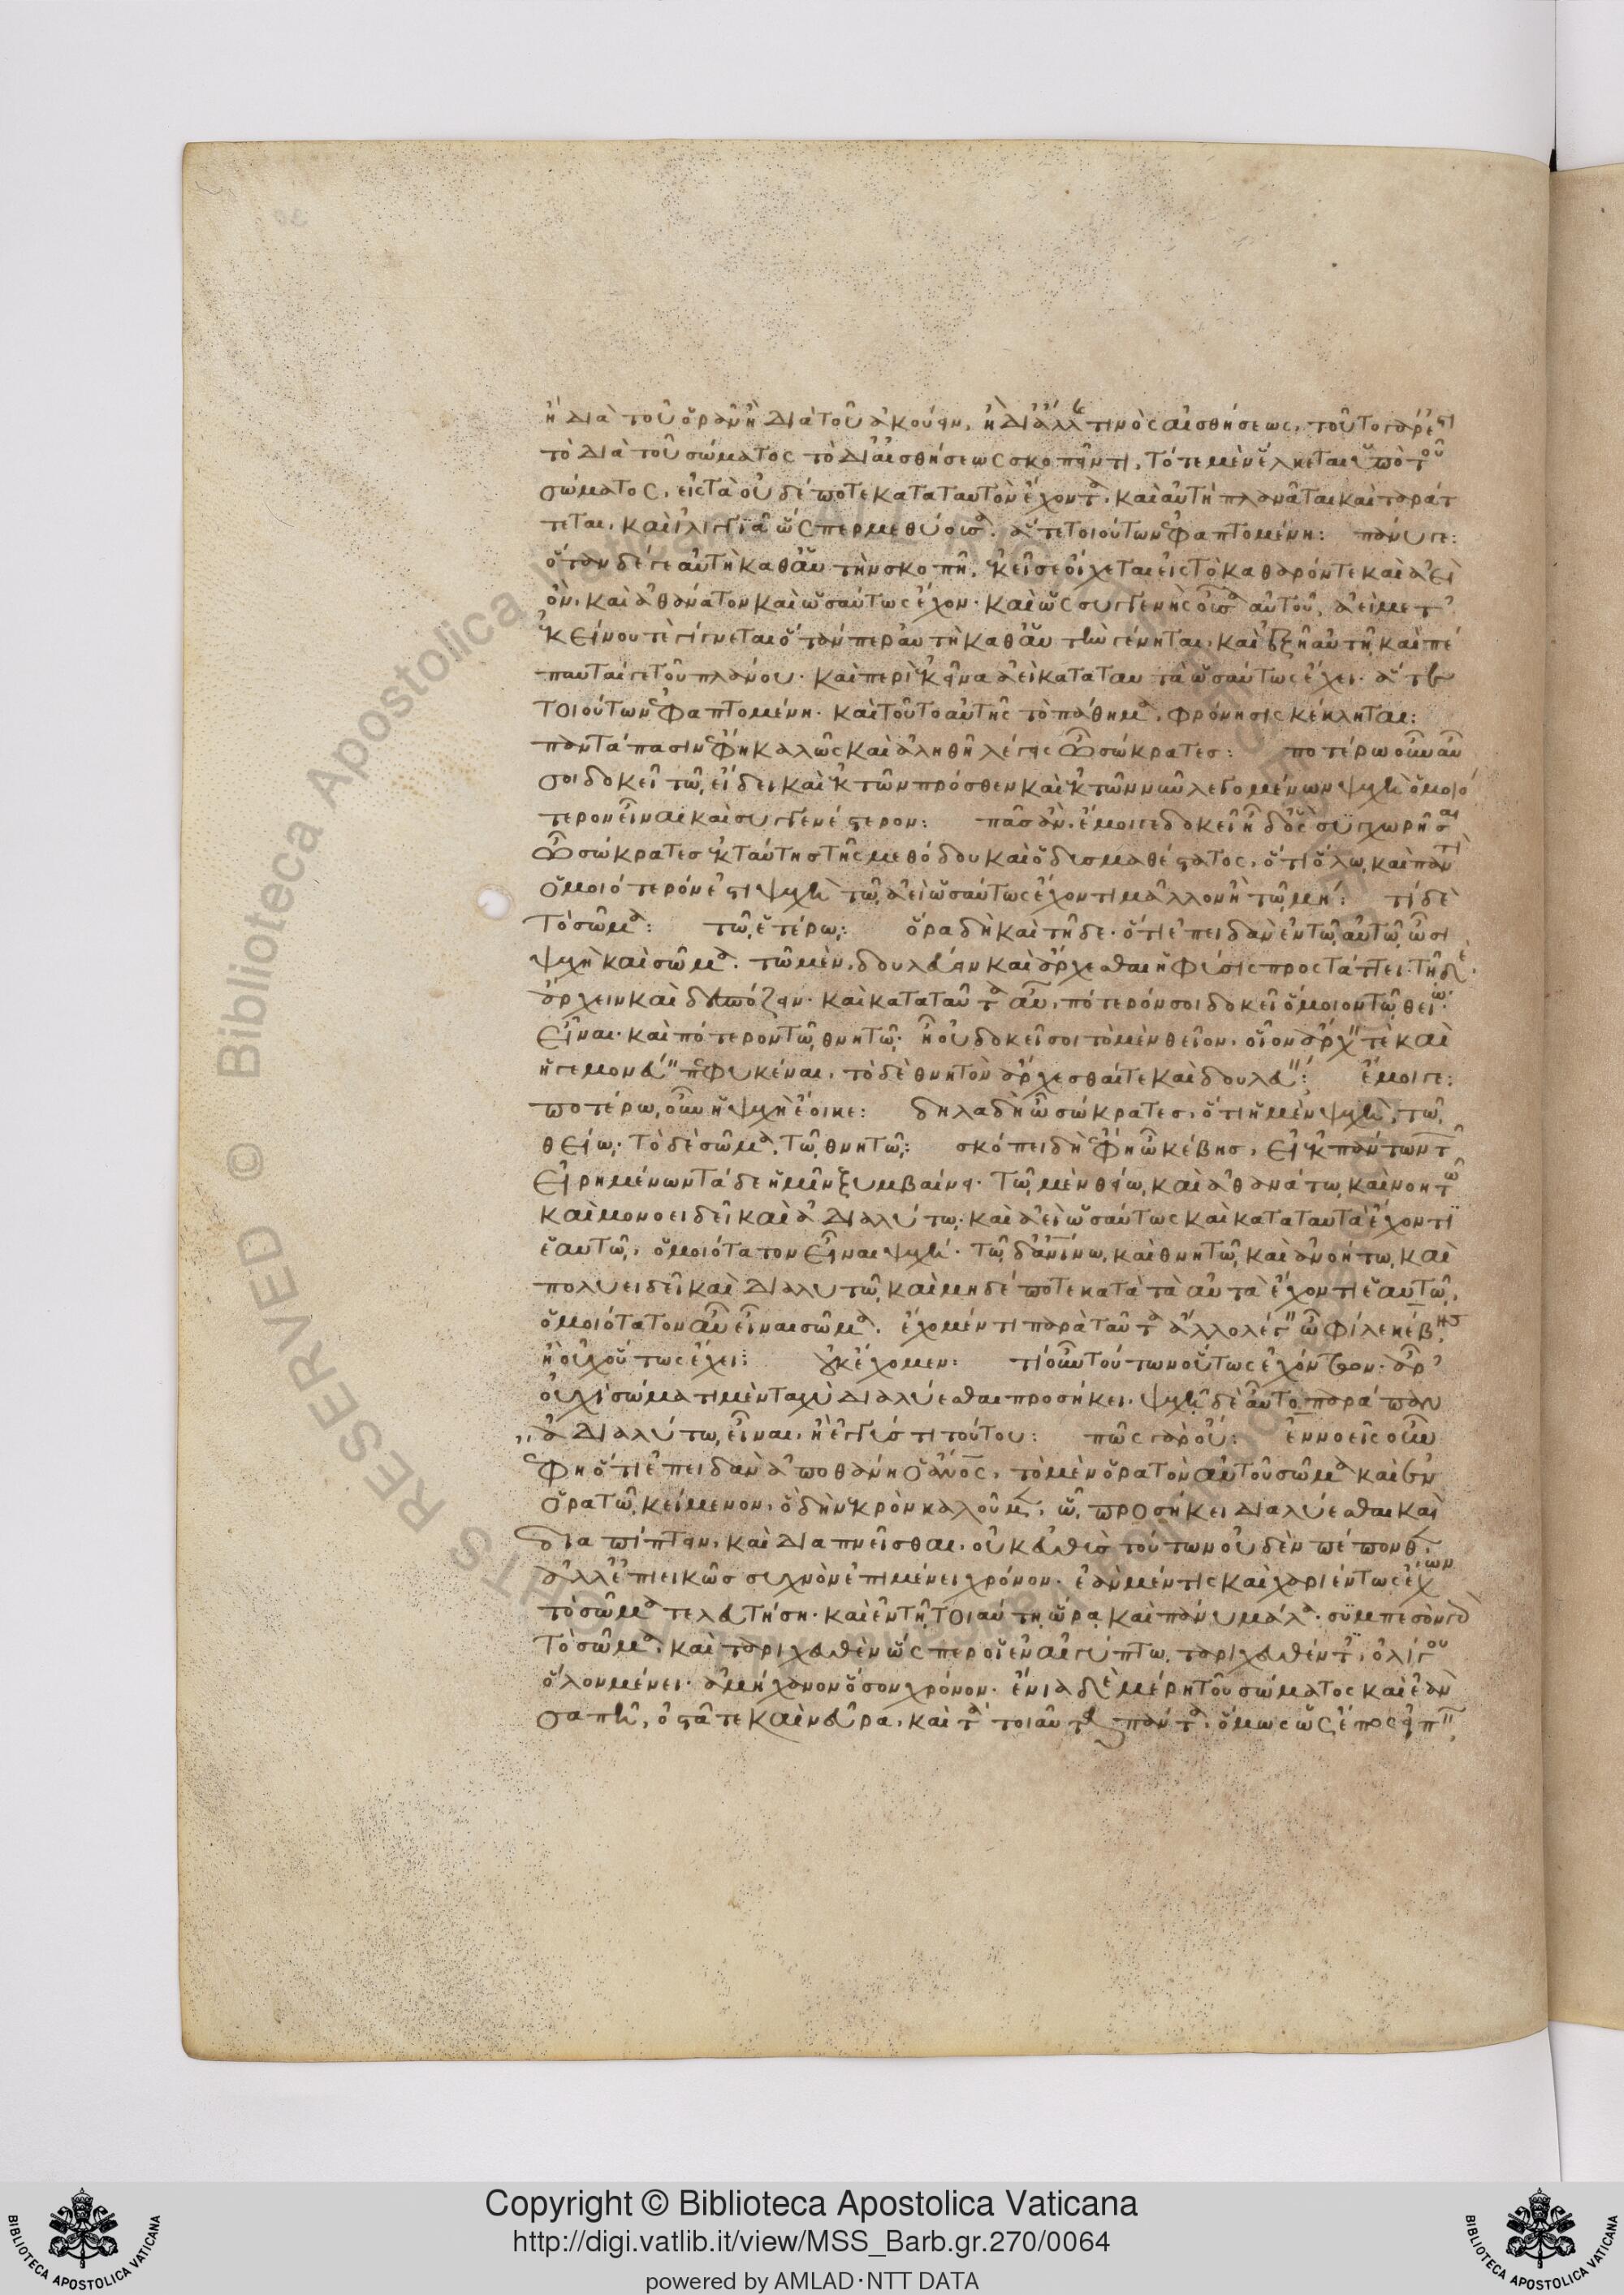 ἢ διὰ τοῦ ὁρᾶν ἢ διὰ τοῦ ἀκούειν, ἢ δι' ἄλλης τινὸς αἰσθήσεως, τοῦτο γάρ ἐστι
τὸ διὰ τοῦ σώματος τὸ δι' αἰσθήσεως σκοπεῖν τι, τότε μὲν ἕλκεται ὑπὸ τοῦ
σώματος, εἰς τὰ οὐδέποτε κατα ταυτὸν ἔχοντα, καὶ αὐτὴ πλανᾶται καὶ ταράτ
τεται, καὶ ἰλιγγιᾶ ὥσπερ μεθύουσα, ἅτε τοιούτων ἐφαπτομένη: πάνυ γε:
ὅταν δέ γε αὐτὴ καθ' αὑτὴν σκοπῇ, ἐκεῖσε οἴχεται εἰς τὸ καθαρόν τε καὶ ἀεὶ
ὂν, καὶ ἀθάνατον καὶ ὡσαύτως ἔχον· καὶ ὡς συγγενὴς οὖσα αὐτοῦ, ἀεὶ μετ'
ἐκείνου τὲ γίγνεται ὅταν περ αὐτὴ καθ' αὑτὴν γένηται, καὶ ἐξῇ αὐτῇ, καὶ πέ
παυταί γε τοῦ πλάνου· καὶ περὶ ἐκεῖνα ἀεὶ κατα ταυτὰ ὡσαύτως ἔχει· ἅτε
τοιούτων ἐφαπτομένη· καὶ τοῦτο αὐτῆς τὸ πάθημα, φρόνησις κέκληται:
παντάπασιν ἔφη καλῶς καὶ ἀληθῆ λέγεις ὦ σώκρατες: ποτέρω οὖν αὖ
σοι δοκεῖ τῶ, εἴδει καὶ ἐκ τῶν πρόσθεν καὶ ἐκ τῶν νῦν λεγομένων ψυχὴ ὁμοιό
τερον εἶναι καὶ συγγενέστερον: πᾶς ἂν, ἔμοιγε δοκεῖ ἦ δ' ὃς συγχωρῆσαι
ὦ σώκρατες ἐκ ταύτης τῆς μεθόδου καὶ ὁ δυσμαθέστατος, ὅτι ὅλω, καὶ παντὶ
ὁμοιότερόν ἐστι ψυχὴ τῶ, ἀεὶ ὡσαύτως ἔχοντι μᾶλλον ἢ τῶ, μή: τί δὲ
τὸ σῶμα: τῶ, ἑτέρω,: ὅρα δὴ καὶ τῇδε· ὅτι ἐπειδὰν ἐν τῶ, αὐτῶ, ὦσι
ψυχὴ καὶ σῶμα, τῶ μὲν, δουλεύειν καὶ ἄρχεσθαι ἡ φύσις προστάττει· τῇ δὲ,
ἄρχειν καὶ δεσπόζειν· καὶ κατα ταῦτα αὖ, πότερόν σοι δοκεῖ ὅμοιον τῶ, θείω,
εἶναι· καὶ πότερον τῶ, θνητῶ,· ἢ οὐ δοκεῖ σοι τὸ μὲν θεῖον, οἷον ἄρχειν τὲ καὶ
ἡγεμονεύειν πεφυκέναι, τὸ δὲ θνητὸν ἄρχεσθαί τε καὶ δουλεύειν: ἔμοιγε:
ποτέρω, οὖν ἡ ψυχὴ ἔοικε: δηλαδὴ ὦ σώκρατες, ὅτι ἡ μὲν ψυχὴ, τῶ,
θείω,· τὸ δὲ σῶμα, τῶ, θνητῶ,: σκόπει δὴ ἔφη ὦ κέβης, εἰ ἐκ πάντων τῶν
εἰρημένων τάδε ἡμῖν ξυμβαίνει· τῶ, μὲν θείω, καὶ ἀθανάτω, καὶ νοητῶ
καὶ μονοειδεῖ καὶ ἀδιαλύτω,· καὶ ἀεὶ ὡσαύτως καὶ κατα ταυτὰ ἔχοντι
ἑαυτῶ,, ὁμοιότατον εἶναι ψυχή· τῶ, δ' ἀνίνω, καὶ θνητῶ, καὶ ἀνοήτω, καὶ
πολυειδεῖ καὶ διαλυτῶ, καὶ μηδέποτε κατὰ τὰ αὐτὰ ἔχοντι ἑαυτῶ,,
ὁμοιότατον αὖ εἶναι σῶμα, ἔχομέν τι παρὰ ταῦτα ἄλλο λέγειν ὦ φίλε κέβης,
ἢ οὐχ οὕτως ἔχει: οὐκ ἔχομεν: τί οὖν τούτων οὕτως ἐχόντων· ἆρ'
οὐχὶ σώματι μὲν ταχὺ διαλύεσθαι προσήκει, ψυχῇ δὲ αὖ τὸ παράπαν
ἀδιαλύτω, εἶναι, ἢ ἐγγύς τι τούτου: πῶς γὰρ οὔ: ἐννοεῖς οὖν
ἔφη ὅτι ἐπειδὰν ἀποθάνη ὁ ἄνος, τὸ μὲν ὁρατὸν αὐτοῦ σῶμα καὶ ἐν
ὁρατῶ, κείμενον, ὃ δὴ νεκρὸν καλοῦμεν, ὧ, προσήκει διαλύεσθαι καὶ
διαπίπτειν, καὶ διαπνεῖσθαι, οὐκ εὐθὺς τούτων οὐδὲν πέπονθεν,
ἀλλ' ἐπιεικῶς συχνὸν ἐπιμένει χρόνον· ἐὰν μέν τις καὶ χαριέντως ἔχων
τὸ σῶμα τελευτήση· καὶ ἐν τῇ, τοιαύτη, ὥρα, καὶ πάνυ μάλα· συμπεσὸν γὰρ
τὸ σῶμα, καὶ ταριχευθὲν ὥσπερ οἱ ἐν αἰγύπτω, ταριχευθέντες, ὀλίγου
ὅλον μένει· ἀμήχανον ὅσον χρόνον· ἔνια δὲ μέρη τοῦ σώματος καὶ ἐὰν
σαπῇ, ὀστᾶ τε καὶ νεῦρα, καὶ τὰ τοιαῦτα πάντα, ὅμως ὡς ἔπος εἰπεῖν,
Copyright © Biblioteca Apostolica Vaticana
http://digi.vatlib.it/view/MSS_Barb.gr.270/0064
powered by AMLAD·NTT DATA